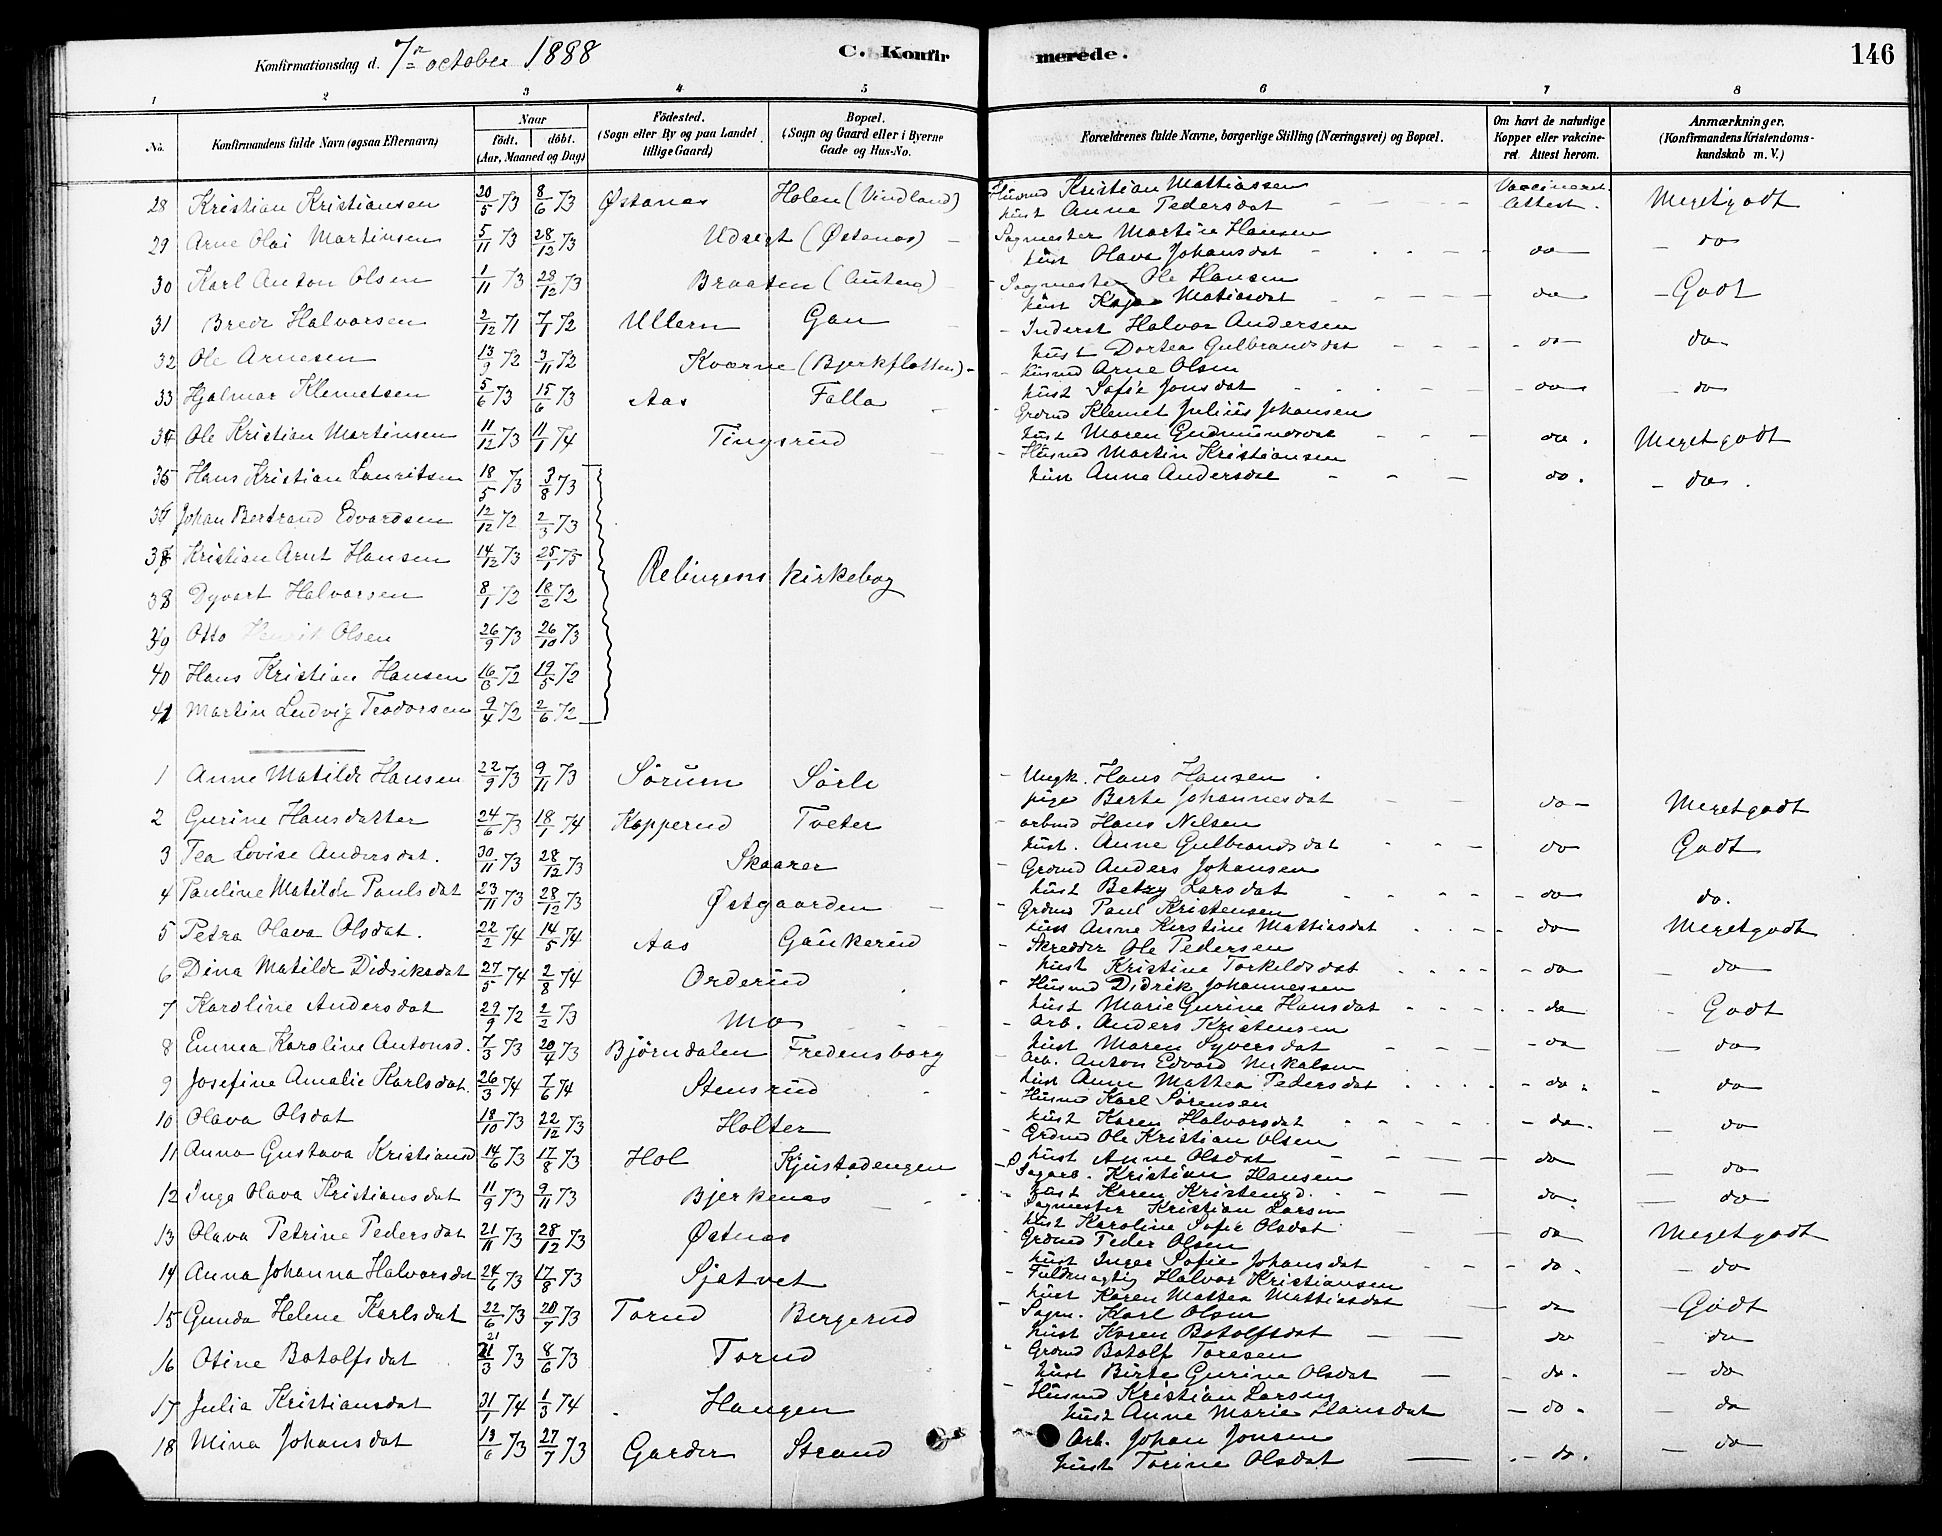 Konfirmationsdag d. 7de october 1888
C. Konfirmerede.
146
1 2 3 4 5 6 7 8
No. Konfirmandens fulde Navn (ogsaa Efternavn) Naar født. døbt. (Aar, Maaned og Dag) Fødested. (Sogn eller By og paa Landet tillige Gaard) Bopæl. (Sogn og Gaard eller i Byerne Gade og Hus-No. Forældrenes fulde Navne, borgerlige Stilling (Næringsvei) og Bopæl. Om havt de naturlige Kopper eller vakcineret. Attest herom. Anmærkninger. (Konfirmandens Kristendomskundskab m. V.)
28 Kristian Kristiansen 20/5 73 8/6 73 Østanas Holen (Vindland) Husmd Kristian Mattiassen hust Anne Pedersdat Vaccineret. Attest. Megetgodt
29 Arne Olai Martinsen 5/11 73 28/12 73 Udsigt (Østanas) Sagmester Martin Hansen hust Olava Johansdat do do
30 Karl Anton Olsen 1/11 73 28/12 73 Braaten (Auteng) Sagmester Ole Hansen hust Kaja Matiasdat do Godt
31 Brede Halvorsen 2/12 71 7/1 72 Ullern Gan Inderst Halvor Andersen hust Dortea Gulbrandsdat do do
32 Ole Arnesen 13/9 72 3/11 72 Kværne (Bjerkflotten) husmd Arne Olsen hust Sofie Jonsdat do do
33 Hjalmar Klemetsen 5/6 73 15/6 73 Aas Falla Grdmd Klemet Julius Johansen hust Maren Gudmundsdat do. Megetgodt
34 Ole Kristian Martinsen 11/12 73 11/1 74 Tingsrud Husmd Martin Kristiansen hust Anne Andersdat do. do.
35 Hans Kristian Lauritsen 18/5 73 3/8 73
36 Johan Bertrand Edvardsen 12/12 72 2/3 73
37 Kristian Arnt Hansen 14/12 73 25/1 75
38 Dyvart Halvorsen 8/1 72 18/2 72 Relingens kirkebog
39 Otto Henrik Olsen 26/9 73 26/10 73
40 Hans Kristian Hansen 16/3 72 19/5 72
41 Martin Ludvig Teodorsen 9/4 72 2/6 72
1 Anne Matilde Hansen 22/9 73 9/11 73 Sörum Sörli Ungk. Hans Hansen pige Berte Johannesdat do Megetgodt
2 Gurine Hansdatter 24/6 73 18/1 74 Kopperud Tveter arbmd Hans Nilsen hust. Anne Gulbrandsdat do Godt
3 Tea Lovise Andersdat. 30/11 73 28/12 73 Skaarer Grdmd Anders Johansen hust Betzy Larsdat do do.
4 Pauline Matilde Paulsdat 23/11 73 28/12 73 Østgaarden Grdmd Paul Kristensen hust Anne Kirstine Mattiasdat do Megetgodt
5 Petra Olava Olsdat. 22/2 74 14/5 74 Aas Gaukerud Skredder Ole Pedersen hust Kristine Torkildsdat do do
6 Dina Matilde Didriksdat 27/5 74 2/8 74 Orderud Husmd Didrik Johannessen hust Marie Gurine Hansdat do Godt
7 Karoline Andersdat 29/9 72 2/2 73 Mo Arb. Anders Kristensen hust Maren Syversdat do do
8 Emma Karoline Antonsd. 7/3 73 20/4 73 Björndalen Fredensborg Arb. Anton Edvard Mikalsen hust Anne Mattea Pedersdat do. do
9 Josefine Amalie Karlsdat. 26/3 74 7/6 74 Stensrud Husmd Karl Sørensen hust Karen Halvorsdat do. do
10 Olava Olsdat 18/10 73 22/12 73 Holter Grdmd Ole Kristian Olsen hust Anne Olsdat do do
11 Anna Gustava Kristiansd 14/6 73 17/8 73 Hol Kjustadengen Sagarb. Kristian Hansen hust Karen Kristensd. do. do
12 Inga Olava Kristiansdat 11/9 73 9/11 73 Bjerkenas Sagmester Kristian Larsen hust Karoline Sofie Olsdat do Megetgodt
13 Olava Petrine Pedersdat 21/11 73 28/12 73 Østnas Grdmd Peder Olsen hust Inger Sofie Johansdat do. do
14 Anna Johanna Halvorsdat 24/6 73 17/8 73 Sjatvet Fuldmægtig Halvor Kristiansen hust Karen Mattea Mattiasdat do Godt
15 Gunda Helene Karlsdat 22/6 73 20/7 73 Torud Bergerud Sagm. Karl Olsen hust Karen Botolfsdat do do
16 Otine Botolfsdat 21 21/3 73 8/6 73 Torud Grdmd Botolf Toresen hust Birte Gurine Olsdat do. do
17 Julia Kristiansdat 31/1 74 1/3 74 Haugen Husmd Kristian Larsen hust Anne Marie Hansdat do. do
18 Mina Johansdat 13/6 73 27/7 73 Garder Strand Arb. Johan Jonsen hust Torine Olsdat do. do